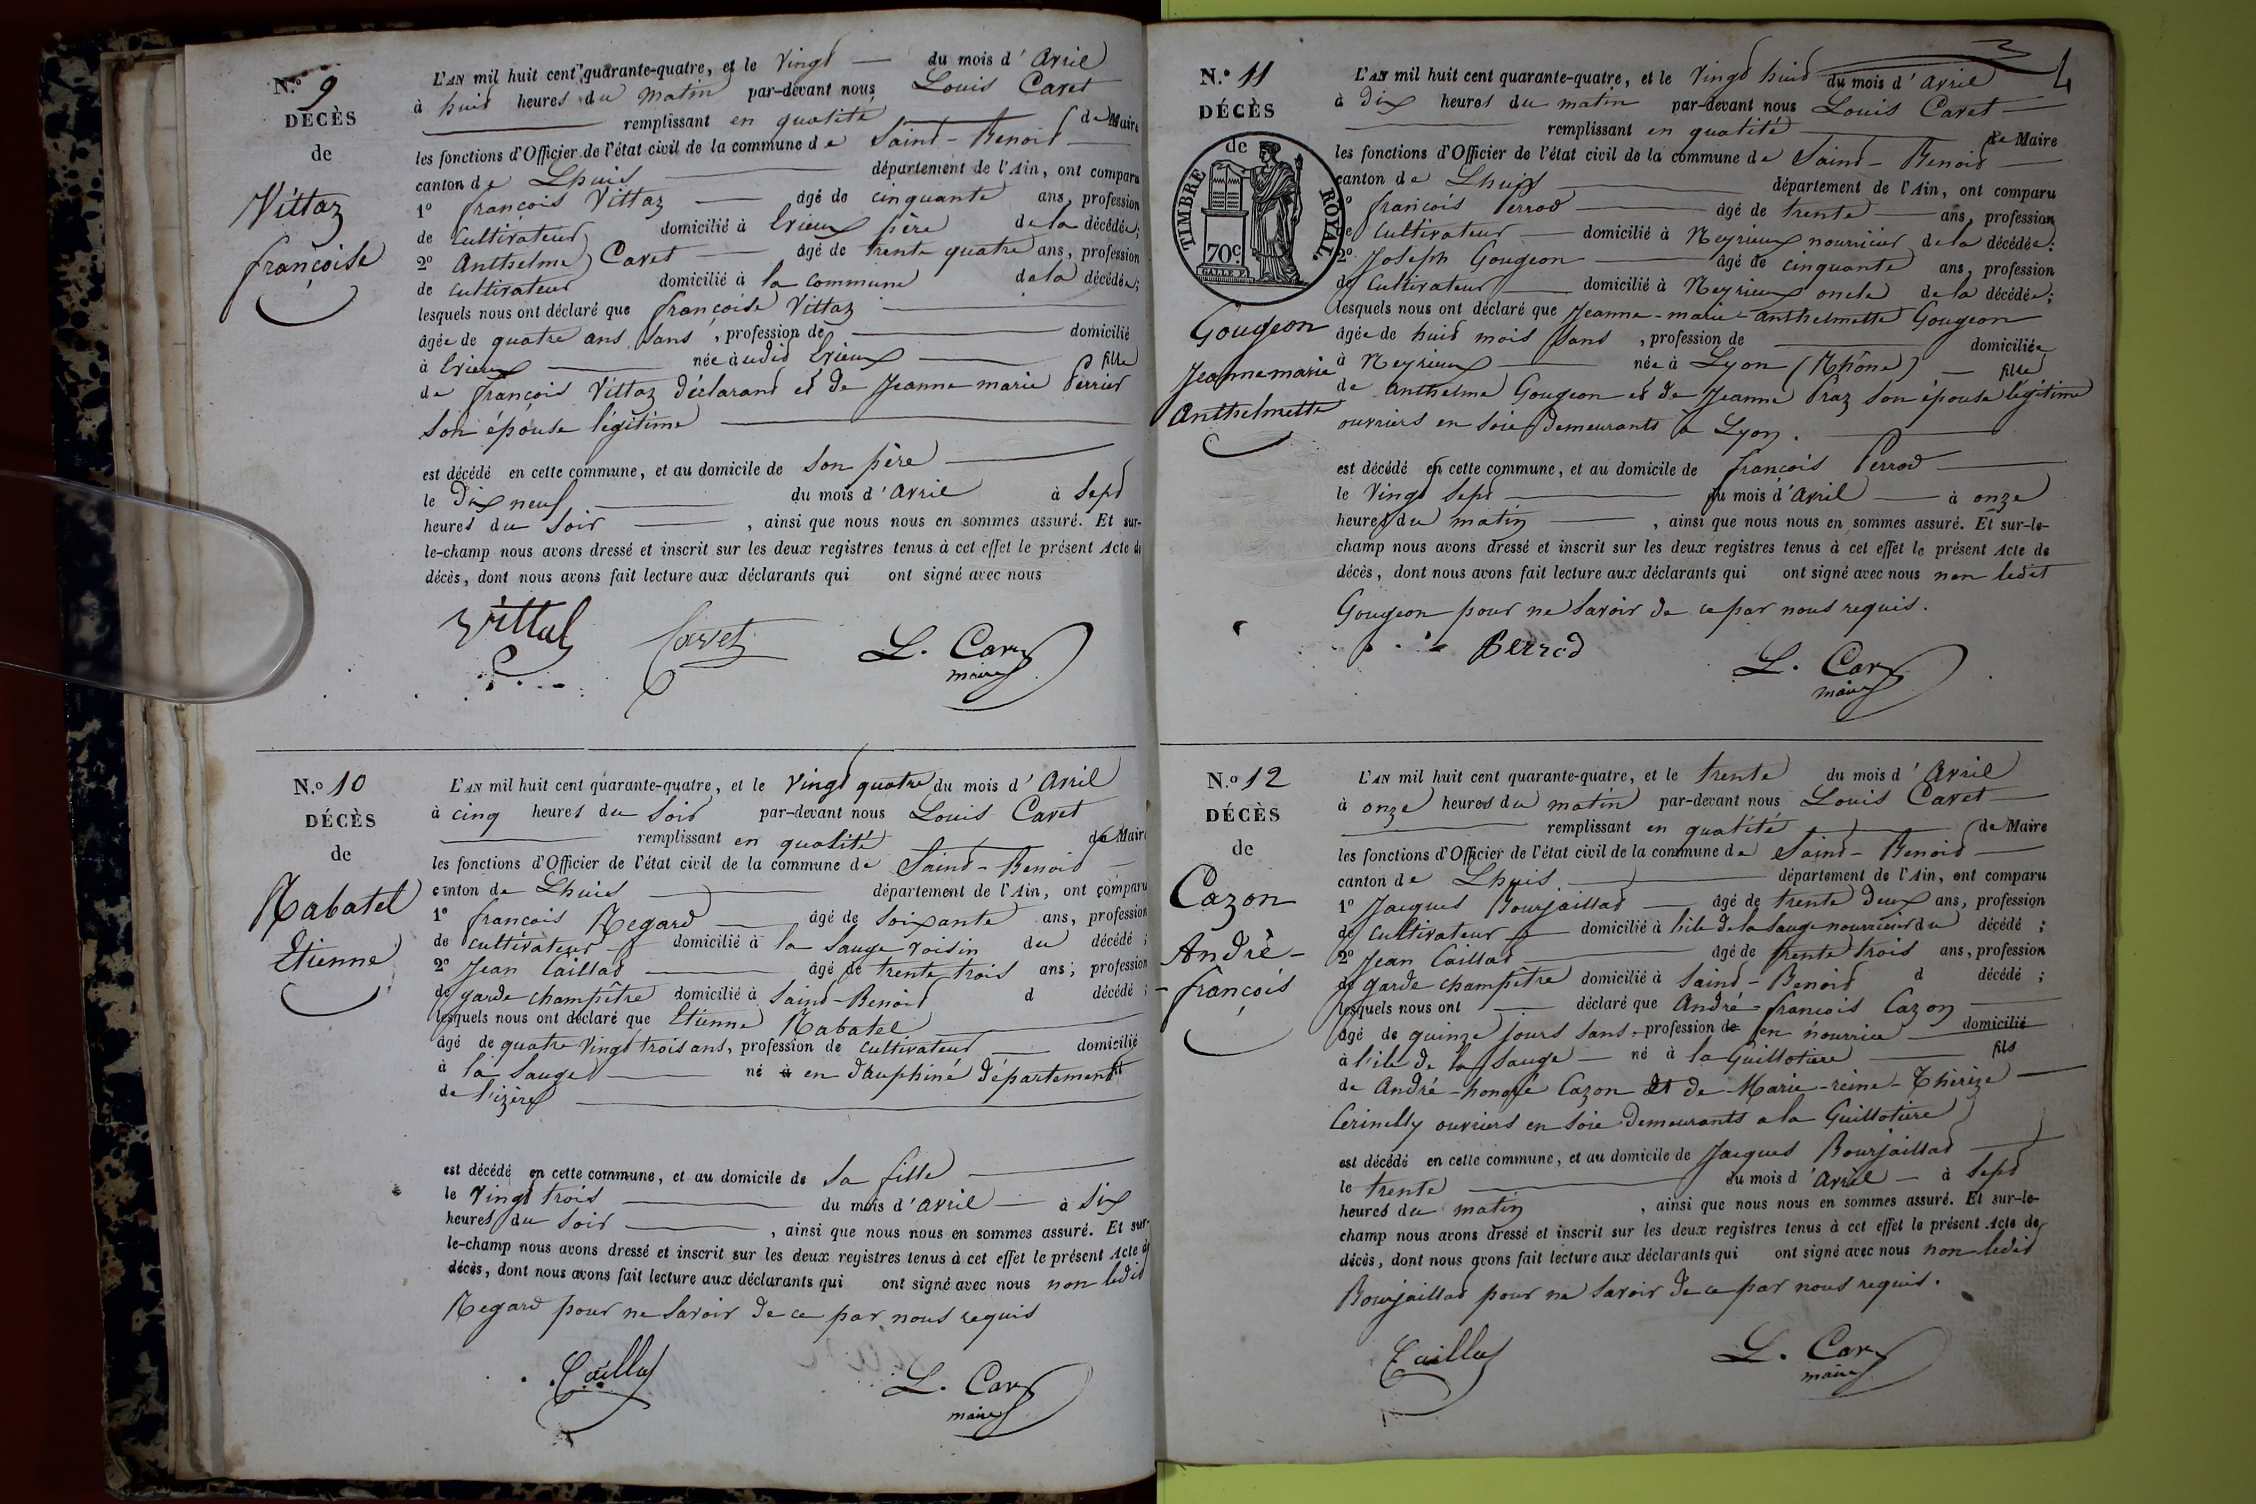 N.º 9
DÉCÈS
de
Vittaz
françoise
L'AN mil huit cent quarante-quatre, et le Vingt du mois d'Avril
à huit heures du matin par-devant nous Louis Cavet
remplissant en qualité de Maire
les fonctions d'Officier de l'état civil de la commune de Saint-Benoit
canton de Lhuis département de l'Ain, ont comparu
1º françois Vittaz âgé de cinquante ans, profession
de Cultivateur domicilié à Evieux père de la décédée;
2º Anthelme Cavet âgé de trente quatre ans, profession
de cultivateur domicilié à la commune de la décédée;
lesquels nous ont déclaré que françoise Vittaz
âgée de quatre ans sans, profession de domicilié
à Evieux née àudit Evieux fille
de françois Vittaz déclarant et de Jeanne marie Perrier
son épouse légitime
est décédé en cette commune, et au domicile de son père
le Dix neuf du mois d'Avril à sept
heures du soir, ainsi que nous nous en sommes assuré. Et sur-
le-champ nous avons dressé et inscrit sur les deux registres tenus à cet effet le présent Acte de
décès, dont nous avons fait lecture aux déclarants qui ont signé avec nous
Cavet L. Cavet
maire
N.º 10
DÉCÈS
de
Rabatel
Etienne
L'AN mil huit cent quarante-quatre, et le Vingt quatre du mois d'Avril
à cinq heures du soir par-devant nous Louis Cavet
remplissant en qualité de Maire
les fonctions d'Officier de l'état civil de la commune de Saint-Benoit
canton de Lhuis département de l'Ain, ont comparu
1º françois Regard âgé de soixante ans, profession
de cultivateur domicilié à la Sauge voisin du décédé;
2º Jean Caillat âgé de trente trois ans; profession
de garde champêtre domicilié à Saint-Benoit d décédé;
lesquels nous ont déclaré que Etienne Rabatel
âgé de quatre Vingt trois ans, profession de cultivateur domicilié
à la Sauge né à en Dauphiné département
de l'izère
est décédé en cette commune, et au domicile de sa fille
le Vingt trois du mois d'avril à six
heures du soir, ainsi que nous nous en sommes assuré. Et sur-
le-champ nous avons dressé et inscrit sur les deux registres tenus à cet effet le présent Acte de
décès, dont nous avons fait lecture aux déclarants qui ont signé avec nous non ledit
Regard pour ne savoir de ce par nous requis
Caillat L. Cavet
maire
4
N.º 11
DÉCÈS
de
TIMBRE ROYAL.
70c
Gougeon
Jeanne marie
Anthelmette
L'AN mil huit cent quarante-quatre, et le Vingt huit du mois d'Avril
à Dix heures du matin par-devant nous Louis Cavet
remplissant en qualité de Maire
les fonctions d'Officier de l'état civil de la commune de Saint-Benoit
canton de Lhuis département de l'Ain, ont comparu
françois Perrod âgé de trente ans, profession
de Cultivateur domicilié à Neyrieux nourricier de la décédée;
2º Joseph Gougeon âgé de cinquante ans, profession
de Cultivateur domicilié à Neyrieux oncle de la décédée;
lesquels nous ont déclaré que Jeanne-marie-anthelmette Gougeon
âgée de huit mois sans, profession de domiciliée
à Neyrieux née à Lyon (Rhône) fille
de anthelme Gougeon et de Jeanne Praz son épouse légitime
ouvriers en soie demeurants à Lyon.
est décédé en cette commune, et au domicile de françois Perrod
le Vingt sept du mois d'Avril à onze
heures du matin, ainsi que nous nous en sommes assuré. Et sur-le-
champ nous avons dressé et inscrit sur les deux registres tenus à cet effet le présent Acte de
décès, dont nous avons fait lecture aux déclarants qui ont signé avec nous non ledit
Gougeon pour ne savoir de ce par nous requis.
Perrod L. Cavet
maire
N.º 12
DÉCÈS
de
Cazon
André-
françois
L'AN mil huit cent quarante-quatre, et le trente du mois d'Avril
à onze heures du matin par-devant nous Louis Cavet
remplissant en qualité de Maire
les fonctions d'Officier de l'état civil de la commune de Saint-Benoit
canton de Lhuis département de l'Ain, ont comparu
1º Jacques Bourjaillat âgé de trente deux ans, profession
de cultivateur domicilié à l'ile de la Sauge nourricier du décédé;
2º Jean Caillat âgé de trente trois ans, profession
de garde champêtre domicilié à Saint-Benoit d décédé;
lesquels nous ont déclaré que André-françois Cazon
âgé de quinze jours sans profession de en nourrice domicilié
à l'ile de la Sauge né à la Guillotiere fils
de André-honoré Cazon et de Marie-reine-Thérèze
ouvriers en soie demeurants a la Guillotiere
est décédé en cette commune, et au domicile de Jacques Bourjaillat
le trente du mois d'Avril à sept
heures du matin, ainsi que nous nous en sommes assuré. Et sur-le-
champ nous avons dressé et inscrit sur les deux registres tenus à cet effet le présent Acte de
décès, dont nous avons fait lecture aux déclarants qui ont signé avec nous non ledit
Bourjaillat pour ne savoir de ce par nous requis.
Caillat L. Cavet
maire